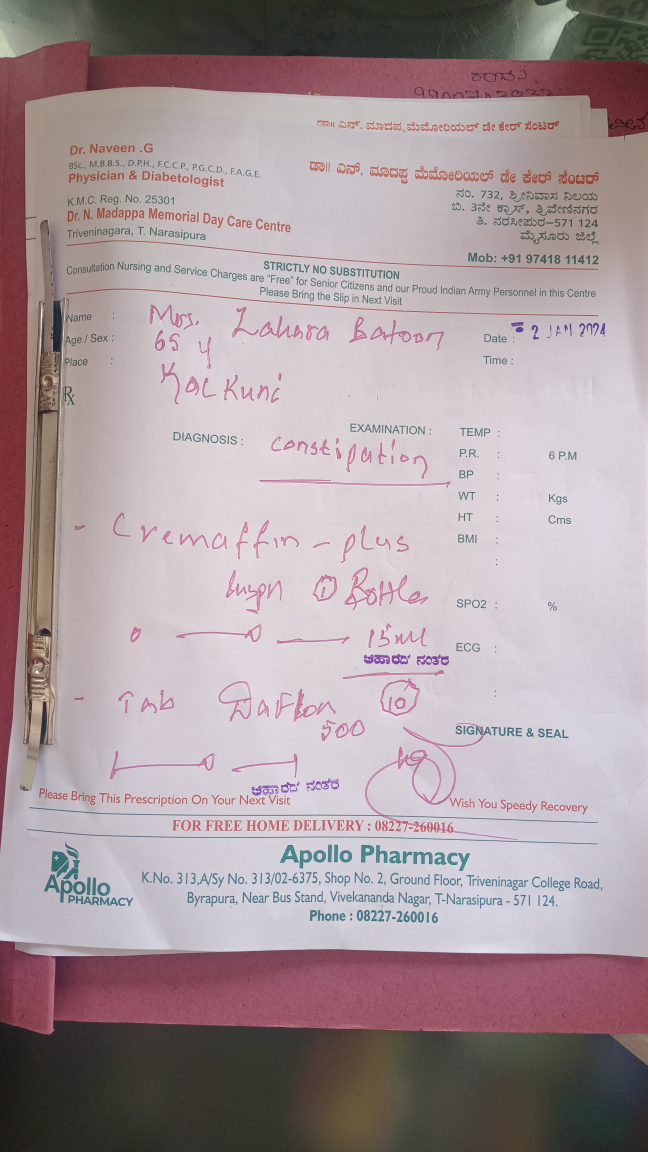 ಡಾ|| ಎನ್. ಮಾದಪ್ಪ ಮೆಮೋರಿಯಲ್ ಡೇ ಕೇರ್ ಸೆಂಟರ್
Dr. Naveen .G
BSc., M.B.B.S., D.P.H., F.C.C.P., P.G.C.D., F.A.G.E.
Physician & Diabetologist
K.M.C. Reg. No. 25301
Dr. N. Madappa Memorial Day Care Centre
Triveninagara, T. Narasipura
ಡಾ|| ಎನ್. ಮಾದಪ್ಪ ಮೆಮೋರಿಯಲ್ ಡೇ ಕೇರ್ ಸೆಂಟರ್
ನಂ. 732, ಶ್ರೀನಿವಾಸ ನಿಲಯ
ಬಿ. 3ನೇ ಕ್ರಾಸ್, ತ್ರಿವೇಣಿನಗರ
ತಿ. ನರಸೀಪುರ-571 124
ಮೈಸೂರು ಜಿಲ್ಲೆ
Mob: +91 97418 11412
STRICTLY NO SUBSTITUTION
Consultation Nursing and Service Charges are "Free" for Senior Citizens and our Proud Indian Army Personnel in this Centre
Please Bring the Slip in Next Visit
Name : Mrs. Zahara Batoon
Date : 2 JAN 2024
Age / Sex : 65 y
Time :
Place : Kalkuni
Rx
DIAGNOSIS : constipation
EXAMINATION :
TEMP :
P.R. : 6 P.M
BP :
WT : Kgs
HT : Cms
BMI :
:
SPO2 : %
ECG :
:
- Cremaffin - plus
① Bottle
0 — 0 — 15ml
ಆಹಾರದ ನಂತರ
- Tab Daflon 10
500
1 — 0 — 1
ಆಹಾರದ ನಂತರ
SIGNATURE & SEAL
Please Bring This Prescription On Your Next Visit
Wish You Speedy Recovery
FOR FREE HOME DELIVERY : 08227-260016
Apollo PHARMACY
Apollo Pharmacy
K.No. 313,A/Sy No. 313/02-6375, Shop No. 2, Ground Floor, Triveninagar College Road,
Byrapura, Near Bus Stand, Vivekananda Nagar, T-Narasipura - 571 124.
Phone : 08227-260016